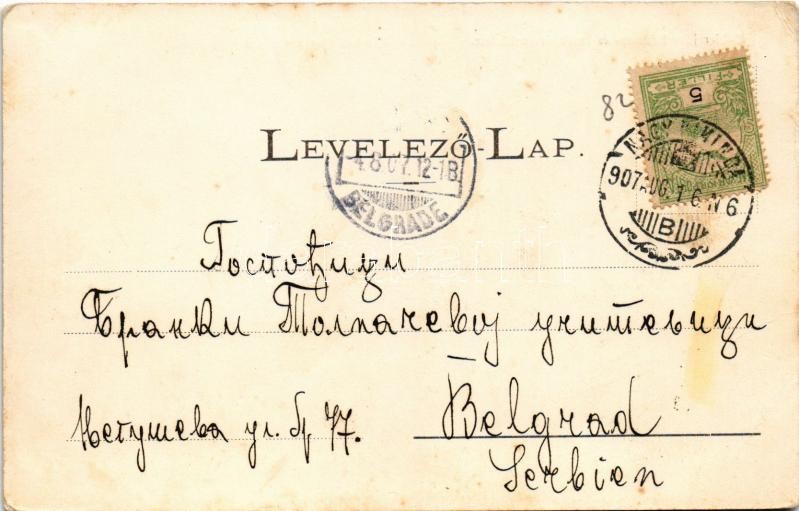 FILLÉR
5
82
LEVELEZŐ-LAP.
4.8.07.12-1B.
BELGRADE
907 AUG. 1 6 N 6
B
Госпођици
Бранки Толпачевој учитељици
Његушева ул. бр 77.
Belgrad
Serbien